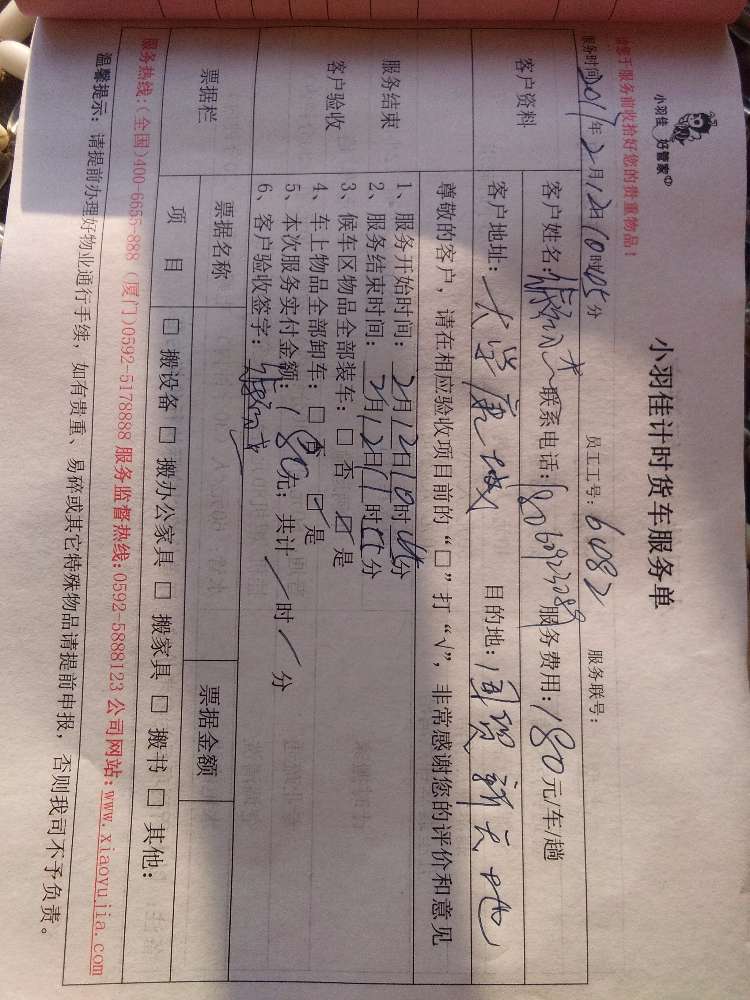 请您于服务前收拾好您的贵重物品！
小羽佳 好管家
小羽佳计时货车服务单
服务时间2017年2月12日10时05分 员工工号：6082 服务联号：
客户资料
客户姓名： 联系电话：18060923289 服务费用：180元/车/趟
客户地址：大学康城 目的地：国贸新天地
尊敬的客户，请在相应验收项目前的“□”打“√”，非常感谢您的评价和意见
服务结束
客户验收
1、服务开始时间：2月12日10时05分
2、服务结束时间：2月12日11时分
3、候车区物品全部装车：□ 否 ☑ 是
4、车上物品全部卸车：□ 否 ☑ 是
5、本次服务实付金额：180元；共计 / 时 / 分
6、客户验收签字：
票据栏 票据名称 票据金额
项 目 □ 搬设备 □ 搬办公家具 □ 搬家具 □ 搬书 □ 其他：
服务热线：(全国)400-6655-888 (厦门)0592-5178888 服务监督热线：0592-5888123 公司网站：www.xiaoyujia.com
温馨提示：请提前办理好物业通行手续，如有贵重、易碎或其它特殊物品请提前申报，否则我司不予负责。